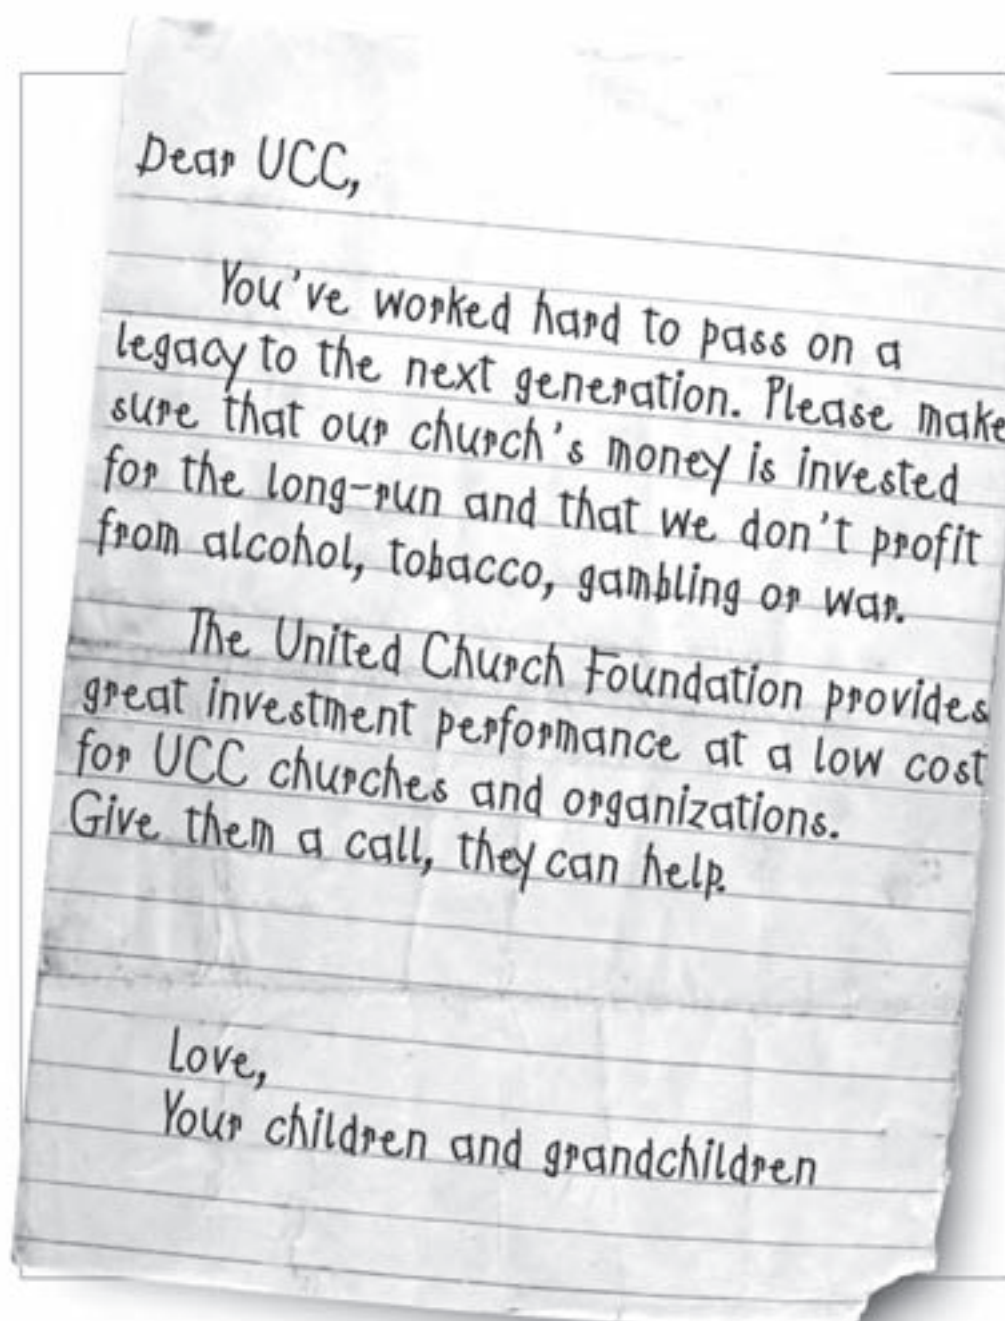 Dear UCC,
You've worked hard to pass on a
legacy to the next generation. Please make
sure that our church's money is invested
for the long-run and that we don't profit
from alcohol, tobacco, gambling or war.
The United Church Foundation provides
great investment performance at a low cost
for UCC churches and organizations.
Give them a call, they can help.
Love,
Your children and grandchildren